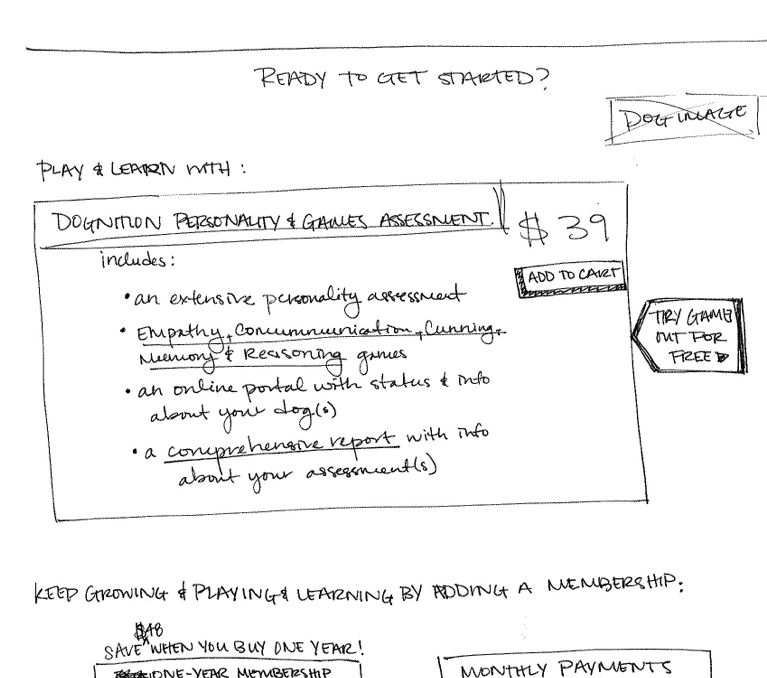 READY TO GET STARTED?
DOG IMAGE
PLAY & LEARN WITH:
DOGNITION PERSONALITY & GAMES ASSESSMENT
$39
includes:
ADD TO CART
• an extensive personality assessment
• Empathy, Communication, Cunning,
Memory & Reasoning games
TRY GAME
OUT FOR
FREE
• an online portal with status & info
about your dog(s)
• a comprehensive report with info
about your assessment(s)
KEEP GROWING & PLAYING & LEARNING BY ADDING A MEMBERSHIP:
$48
SAVE ^ WHEN YOU BUY ONE YEAR!
ONE-YEAR MEMBERSHIP
MONTHLY PAYMENTS